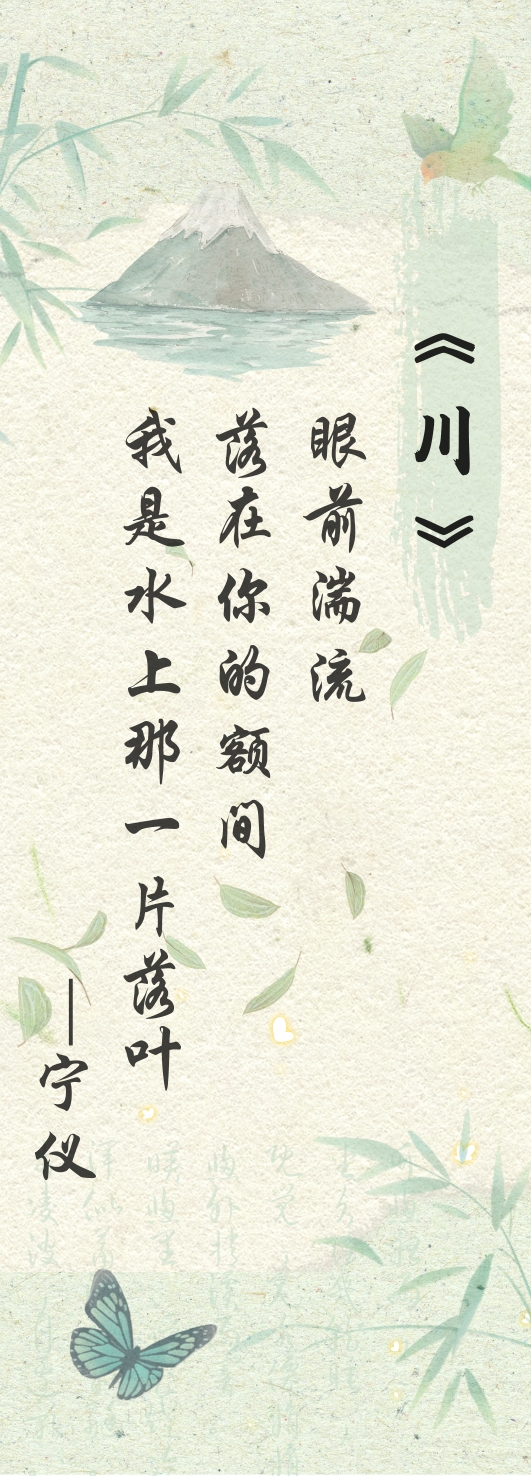 《川》
眼前湍流
落在你的额间
我是水上那一片落叶
—宁仪